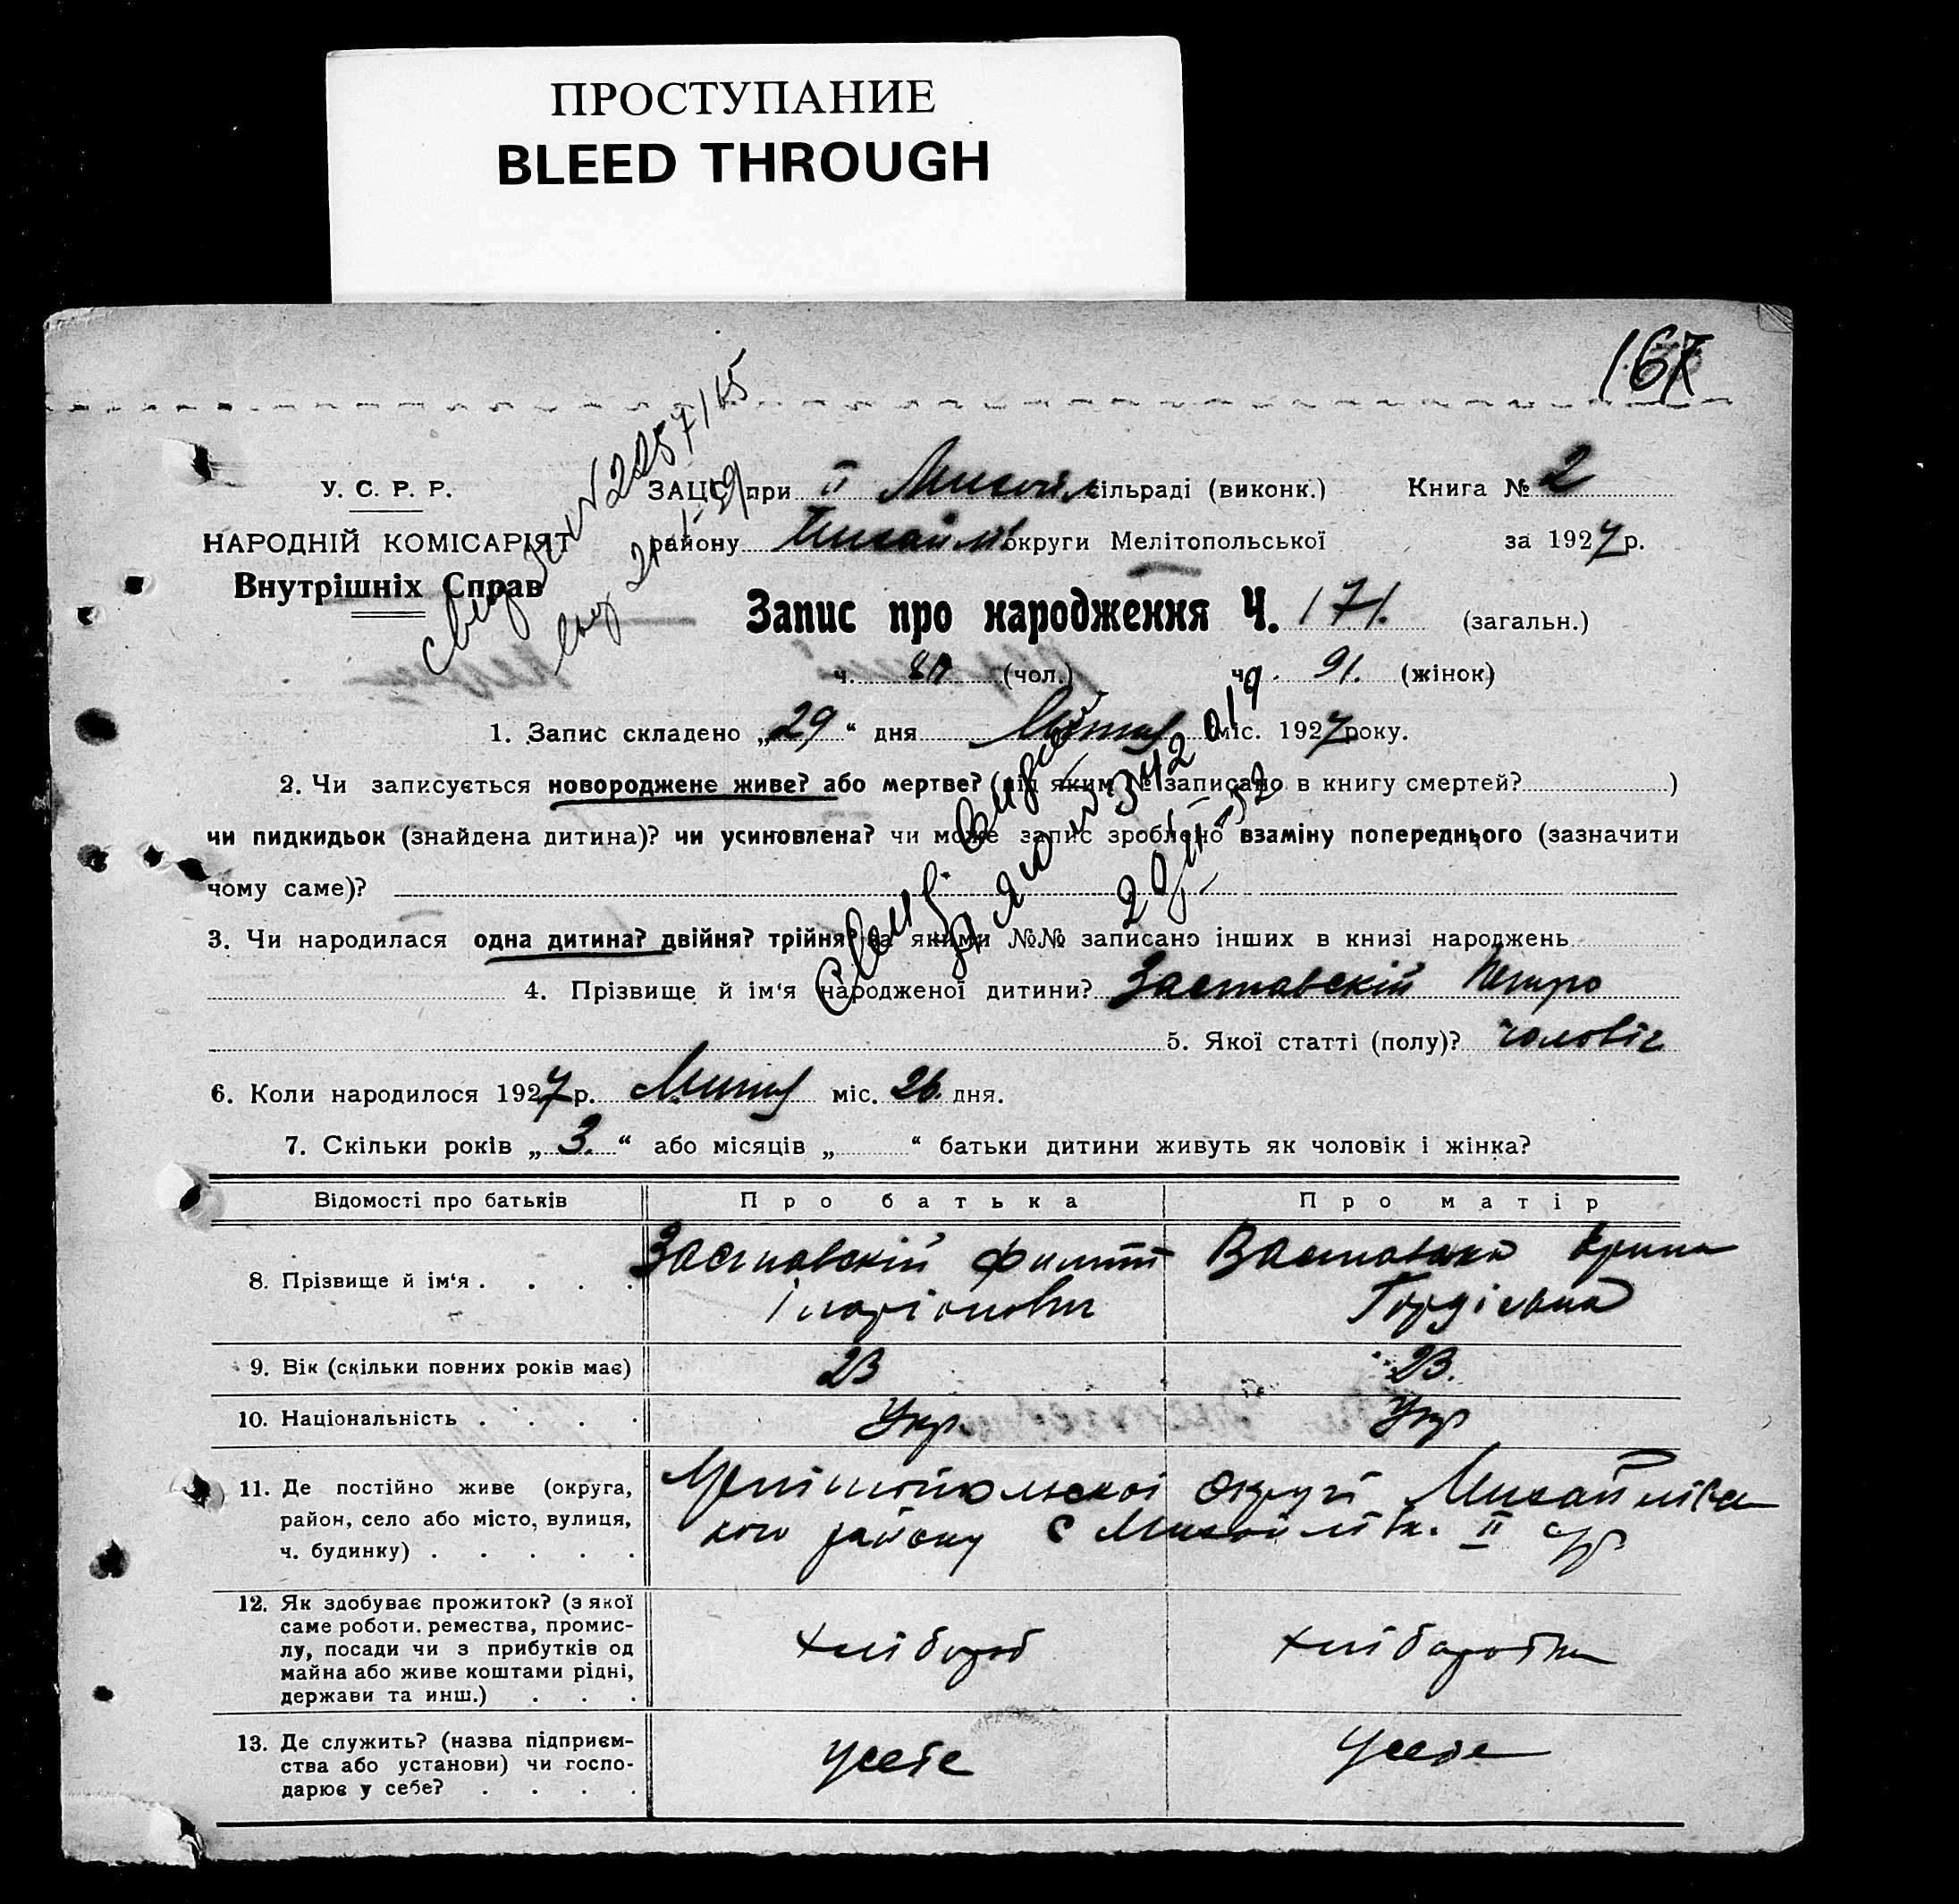 ПРОСТУПАНИЕ
BLEED THROUGH
167
У. С. Р. Р.
НАРОДНІЙ КОМІСАРІЯТ
Внутрішніх Справ
ЗАЦС при ІІ Михайл сільраді (виконк.) Книга № 2
району Михайлів округи Мелітопольської за 1927 р.
Запис про народження Ч. 171. (загальн.)
ч. 80 (чол.) ч. 91. (жінок)
1. Запис складено „29" дня міс. 1927 року.
2. Чи записується новороджене живе? або мертве? (під яким № записано в книгу смертей? )
чи пидкидьок (знайдена дитина)? чи усиновлена? чи може запис зроблено взаміну попереднього (зазначити
чому саме)?
3. Чи народилася одна дитина? двійня? трійня? за якими №№ записано інших в книзі народжень
4. Прізвище й ім'я народженої дитини? Заставскій Петро
5. Якої статті (полу)? чоловіч
6. Коли народилося 1927 р. міс. 26. дня.
7. Скільки років „3." або місяців „ " батьки дитини живуть як чоловік і жінка?
Відомості про батьків Про батька Про матір
8. Прізвище й ім'я . . . . Заставскій Филипп Заставська Ірина
Іларіонович Гордієвна
9. Вік (скільки повних років має) 23 23.
10. Національність . . . . Укр. Укр
11. Де постійно живе (округа, район, село або місто, вулиця, ч. будинку) . . . . .
Мелітопольскоі округі Михайлівс
кого району с Михайлівк. ІІ с/р
12. Як здобуває прожиток? (з якої саме роботи, ремества, промислу, посади чи з прибутків од майна або живе коштами рідні, держави та инш.) . . . хлібороб хліборобка
13. Де служить? (назва підприємства або установи) чи господарює у себе? . . . . у себе у себе